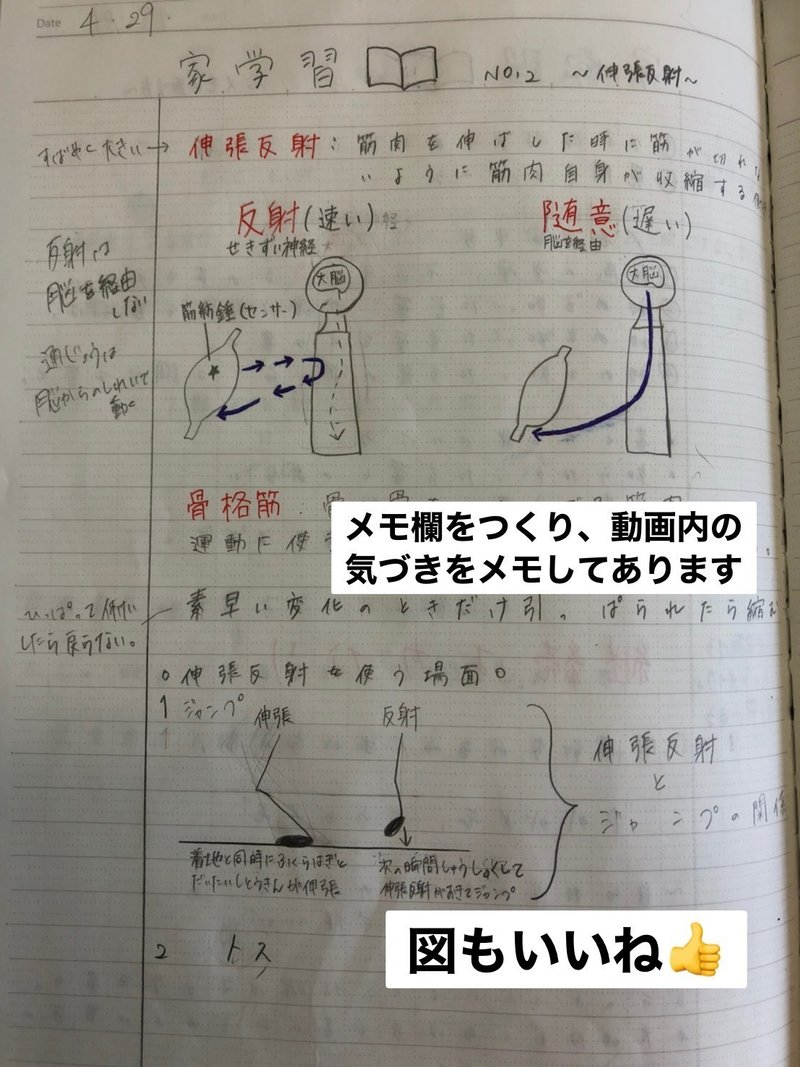 Date 4.29.
家学習 NO.2 ~伸張反射~
すばやく大きい→
伸張反射:筋肉を伸ばした時に筋が切れな
いように筋肉自身が収縮する
反射(速い)
せきずい神経
随意(遅い)
脳を経由
反射は
脳を経由
しない
通じょうは
脳からのしれいで
動く
大脳
筋紡錘(センサー)
大脳
骨格筋
運動に使
メモ欄をつくり、動画内の
気づきをメモしてあります
ひっぱって
したら戻らない。
素早い変化のときだけ引っぱられたら縮む
○伸張反射を使う場面○
1 ジャンプ
伸張
反射
着地と同時にふくらはぎと
だいたいしとうきんが伸張
次の瞬間しゅうしゅくして
伸張反射がおきてジャンプ
伸張反射
と
ジャンプの関係
図もいいね👍
2 トス